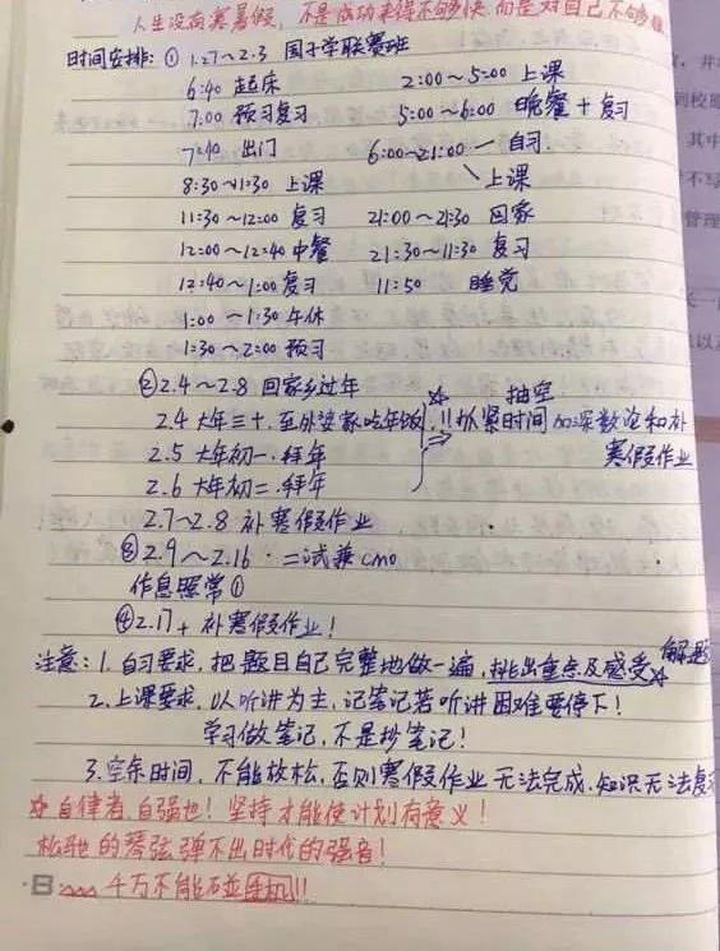 人生没有寒暑假，不是成功来得不够快，而是对自己不够
时间安排：① 1.27～2.3 国子学联赛班
6:40 起床 2:00～5:00 上课
7:00 预习复习 5:00～6:00 晚餐＋复习
7:40 出门 6:00～21:00 一 自习.
8:30～11:30 上课 ＼上课
11:30～12:00 复习 21:00～21:30 回家
12:00～12:40 中餐 21:30～11:30 复习
12:40～1:00 复习 11:50 睡觉
1:00～1:30 午休
1:30～2:00 预习
②2.4～2.8 回家乡过年 ☆ 抽空
2.4 大年三十，至外婆家吃年饭 !! 抓紧时间加深数论和补
2.5 大年初一.拜年 寒假作业
2.6 大年初二.拜年
2.7～2.8 补寒假作业
③2.9～2.16. 二试兼CMO
作息照常①
④2.17+ 补寒假作业！
注意：1.自习要求，把题目自己完整地做一遍，挑出重点及感受☆ 解题
2.上课要求，以听讲为主，记笔记若听讲困难要停下！
学习做笔记，不是抄笔记！
3.空余时间，不能放松，否则寒假作业无法完成，知识无法复
☆自律者，自强也！坚持才能使计划有意义！
松驰的琴弦弹不出时代的强音！
千万不能碰手机!!
到校
其中
不写
管理